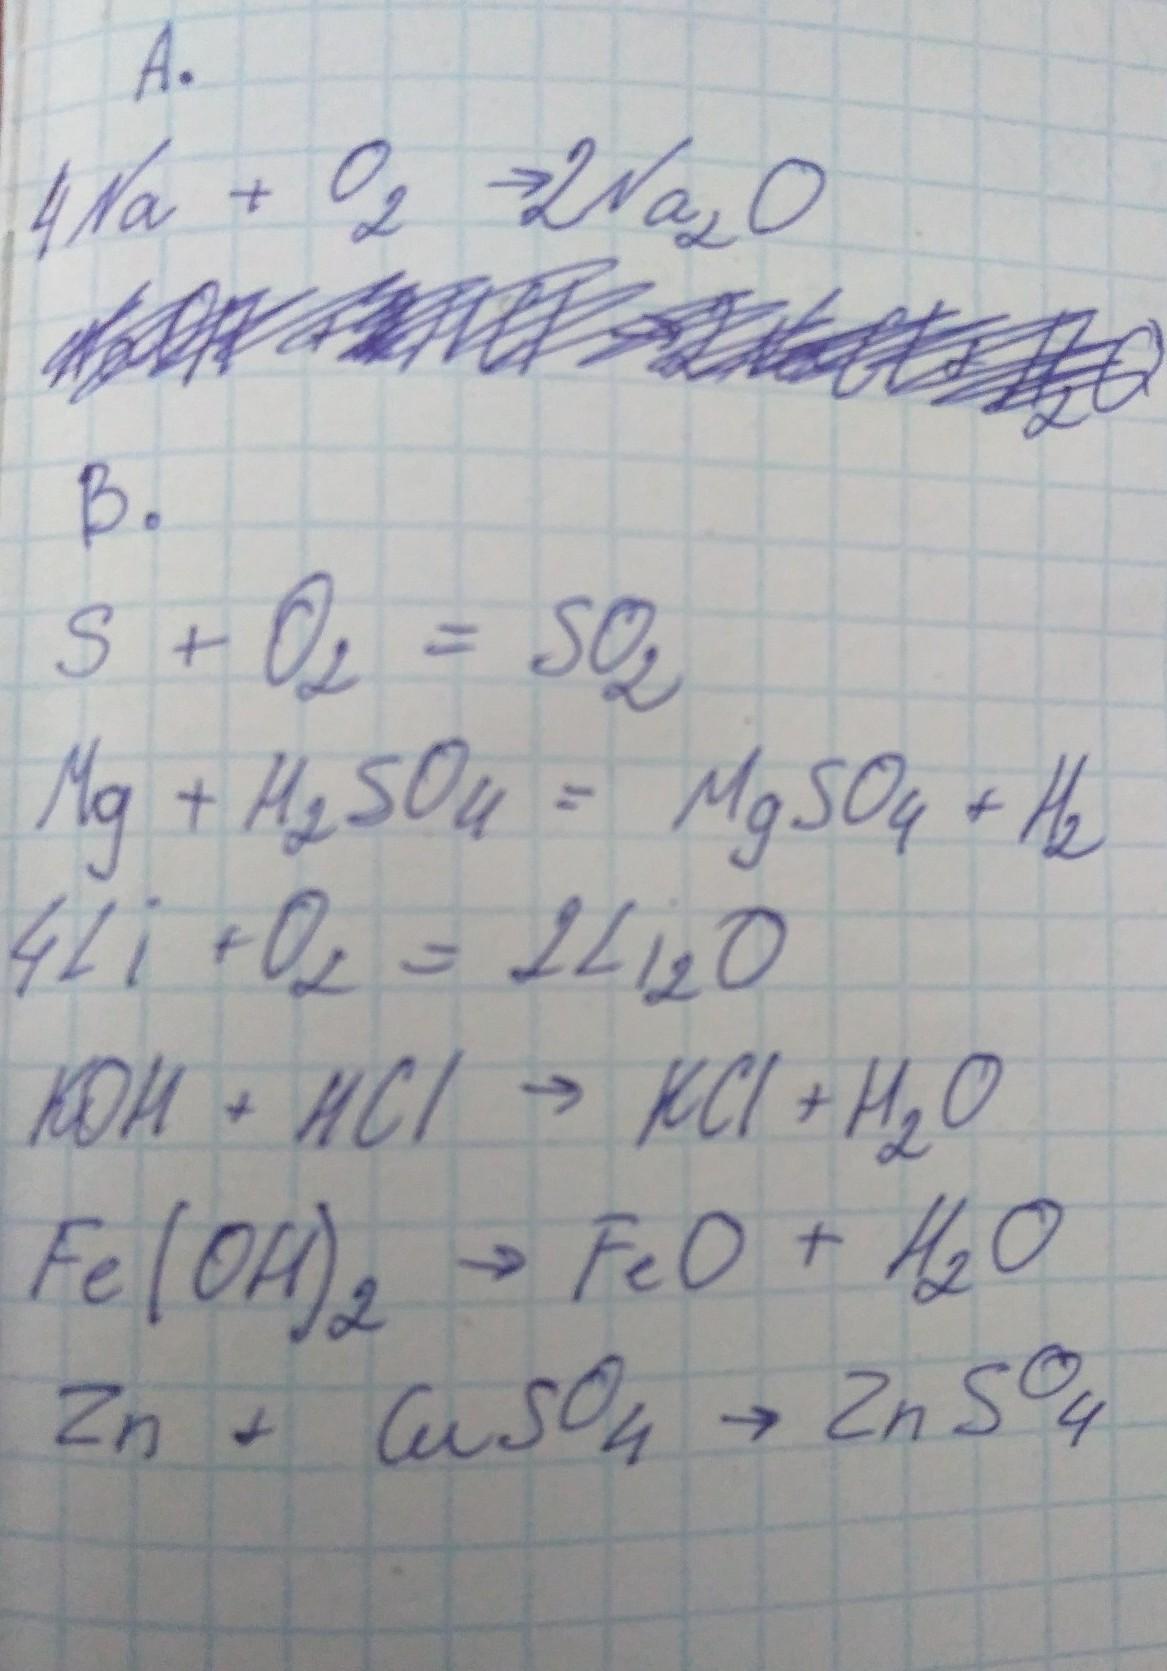 A.
4Na + O₂ → 2Na₂O
B.
S + O₂ = SO₂
Mg + H₂SO₄ = MgSO₄ + H₂
4Li + O₂ = 2Li₂O
KOH + HCl → KCl + H₂O
Fe(OH)₂ → FeO + H₂O
Zn + CuSO₄ → ZnSO₄